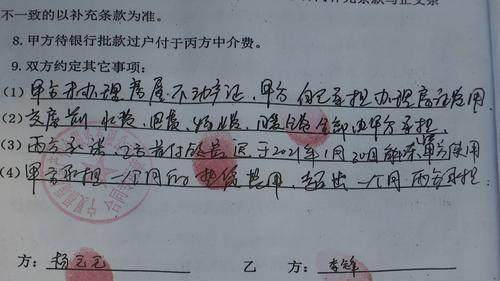 补充条款与正文条
不一致的以补充条款为准。
8. 甲方待银行批款过户付于丙方中介费。
9. 双方约定其它事项:
(1) 甲方未办理房屋不动产证,甲方自己承担办理房证费用
(2) 交房前水费、电费、物业费、暖气费全部由甲方承担.
(3) 丙方承诺乙方首付于2021年1月20日解冻甲方使用
(4) 甲方承担一个月的费用,超出一个月丙方承担.
方: 杨元元 乙 方: 李锋